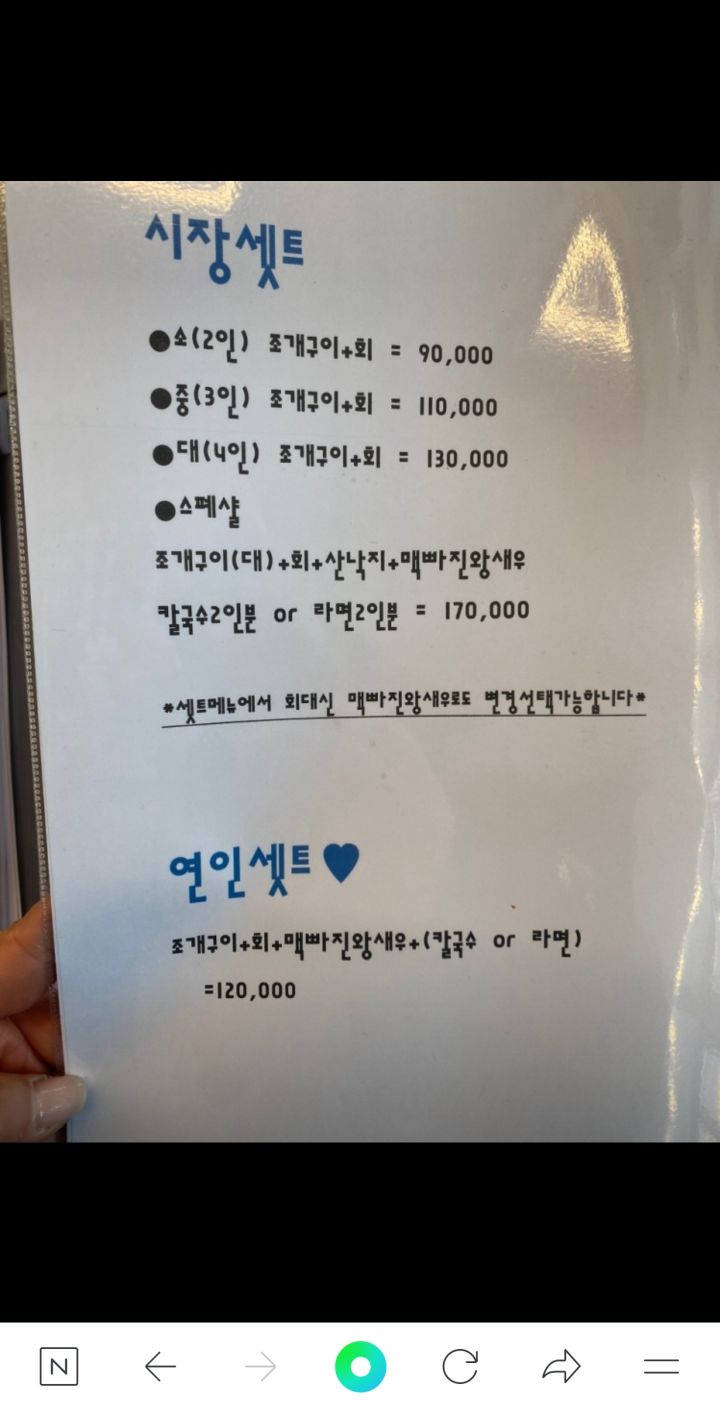 시장셋트
●소(2인) 조개구이+회 = 90,000
●중(3인) 조개구이+회 = 110,000
●대(4인) 조개구이+회 = 130,000
●스페샬
조개구이(대)+회+산낙지+맥빠진왕새우
칼국수2인분 or 라면2인분 = 170,000
*셋트메뉴에서 회대신 맥빠진왕새우로도 변경선택가능합니다*
연인셋트♥
조개구이+회+맥빠진왕새우+(칼국수 or 라면)
=120,000
N